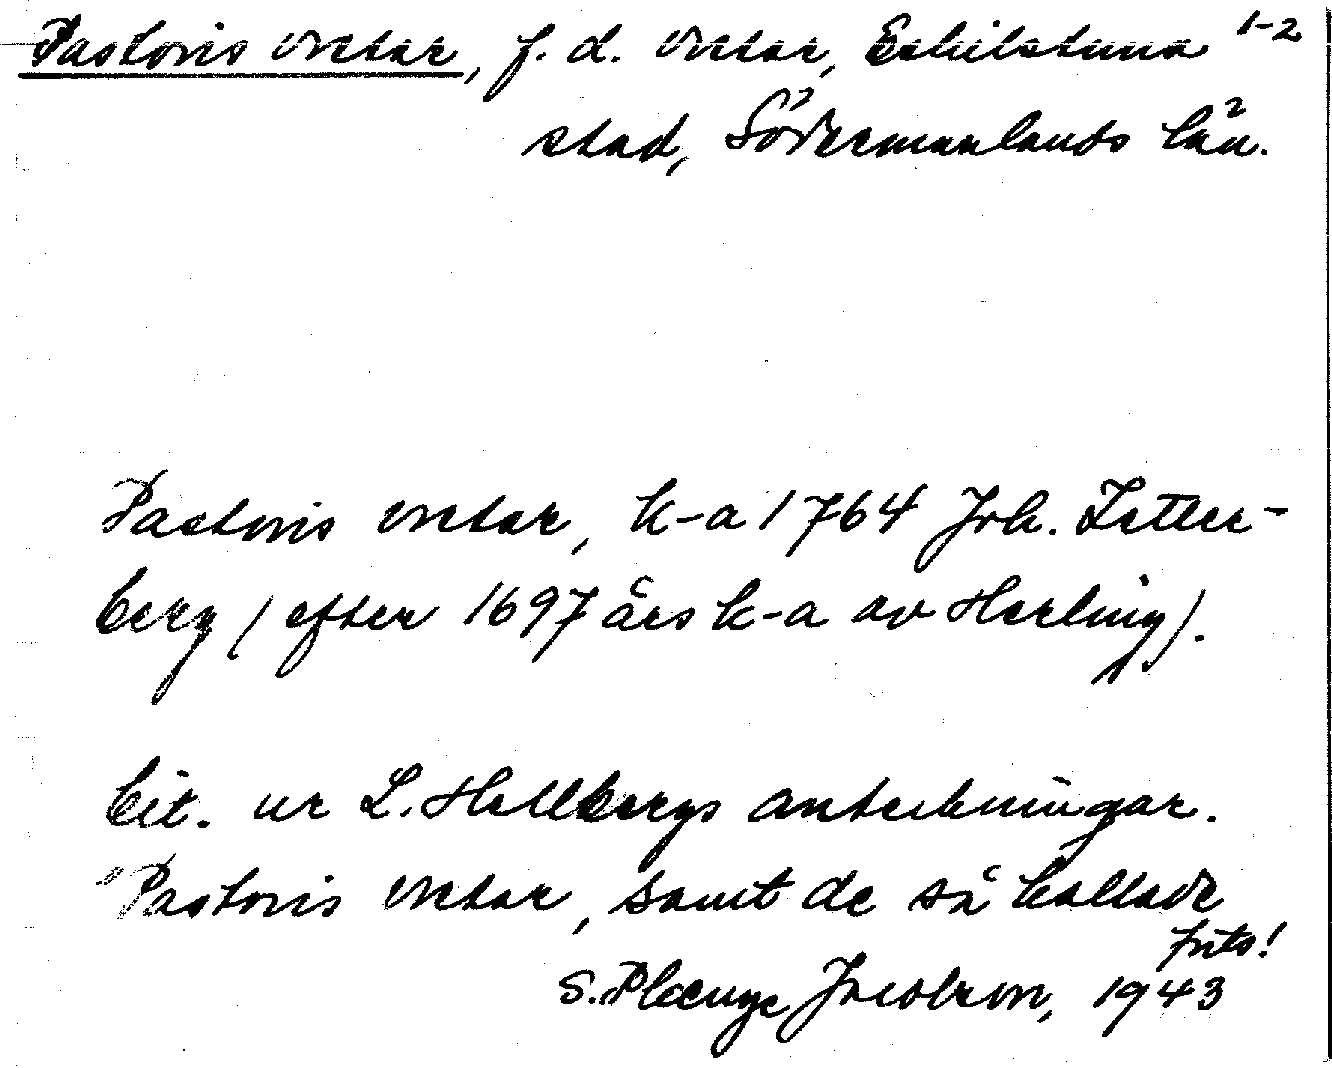 Pastoris vretar, f. d. vretar, Eskilstuna 1-2
stad, Södermanlands län.
Pastoris vretar, k-a 1764 Joh. Zetter-
berg (efter 1697 års k-a av Herling).
Cit. ur L. Hellbergs anteckningar.
"Pastoris vretar, samt de så kallade
forts!
S. Plænge Jacobson, 1943